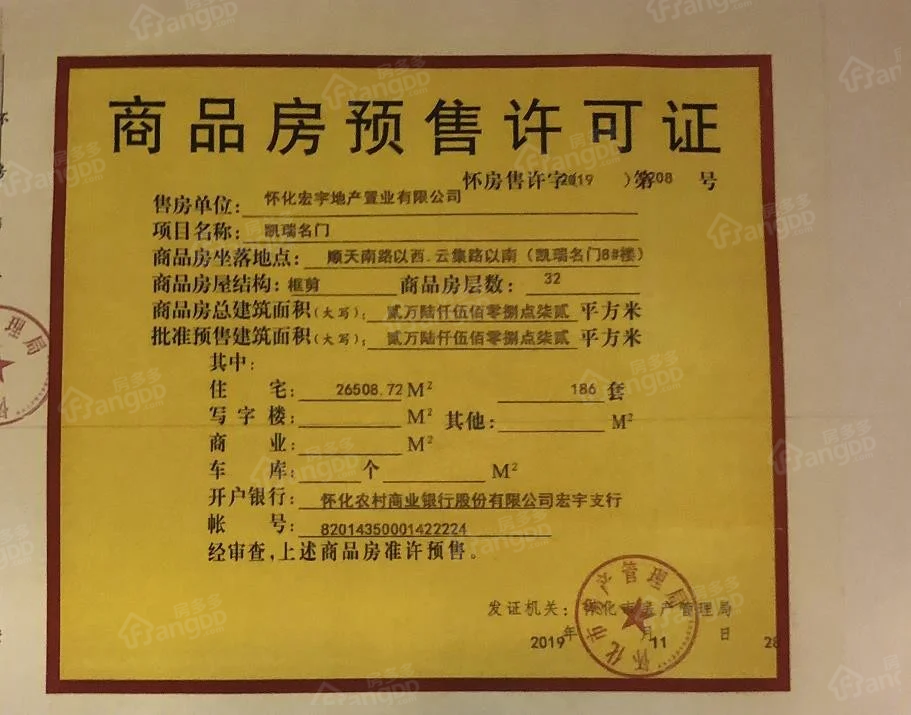 商品房预售许可证
怀房售许字(2019)第208号
售房单位: 怀化宏宇地产置业有限公司
项目名称: 凯瑞名门
商品房坐落地点: 顺天南路以西.云集路以南(凯瑞名门8#楼)
商品房屋结构: 框剪 商品房层数: 32
商品房总建筑面积(大写): 贰万陆仟伍佰零捌点柒贰 平方米
批准预售建筑面积(大写): 贰万陆仟伍佰零捌点柒贰 平方米
其中:
住宅: 26508.72 M² 186 套
写字楼: M² 其他: M²
商业: M²
车库: 个 M²
开户银行: 怀化农村商业银行股份有限公司宏宇支行
帐号: 82014350001422224
经审查,上述商品房准许预售。
发证机关: 怀化市房产管理局
2019年11月28日
怀化市房产管理局
房多多
Fangdd